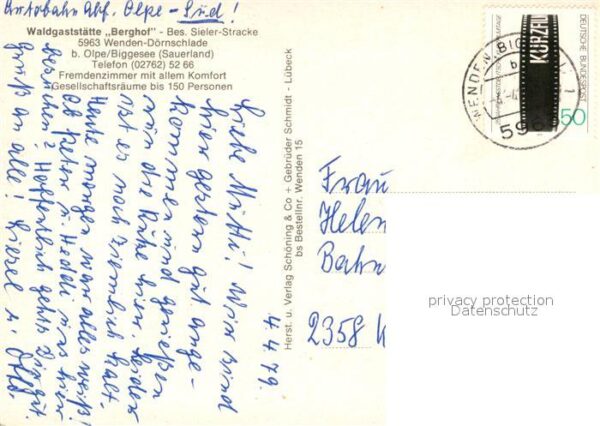 Autobahn Abf. Olpe - Süd!
Waldgaststätte „Berghof" - Bes. Sieler-Stracke
5963 Wenden-Dörnschlade
b. Olpe/Biggesee (Sauerland)
Telefon (02762) 52 66
Fremdenzimmer mit allem Komfort
Gesellschaftsräume bis 150 Personen
4.4.79.
Liebe Mutti! Wir sind
hier gestern gut ange-
kommen und genießen
nun die Ruhe hier. Leider
ist es noch ziemlich kalt.
Heute morgen war alles weiß!
Ob Peter u. Heddi uns hier
besuchen? Hoffentlich geht's Dir gut
Gruß an alle! Liesel u. Otto.
Herst. u. Verlag Schöning & Co + Gebrüder Schmidt - Lübeck
bs Bestellnr. Wenden 15
Frau
Helen
Bahn
2358 K
WENDEN, BIGG
59
KURZFIL
DEUTSCHE BUNDESPOST
50
privacy protection
Datenschutz